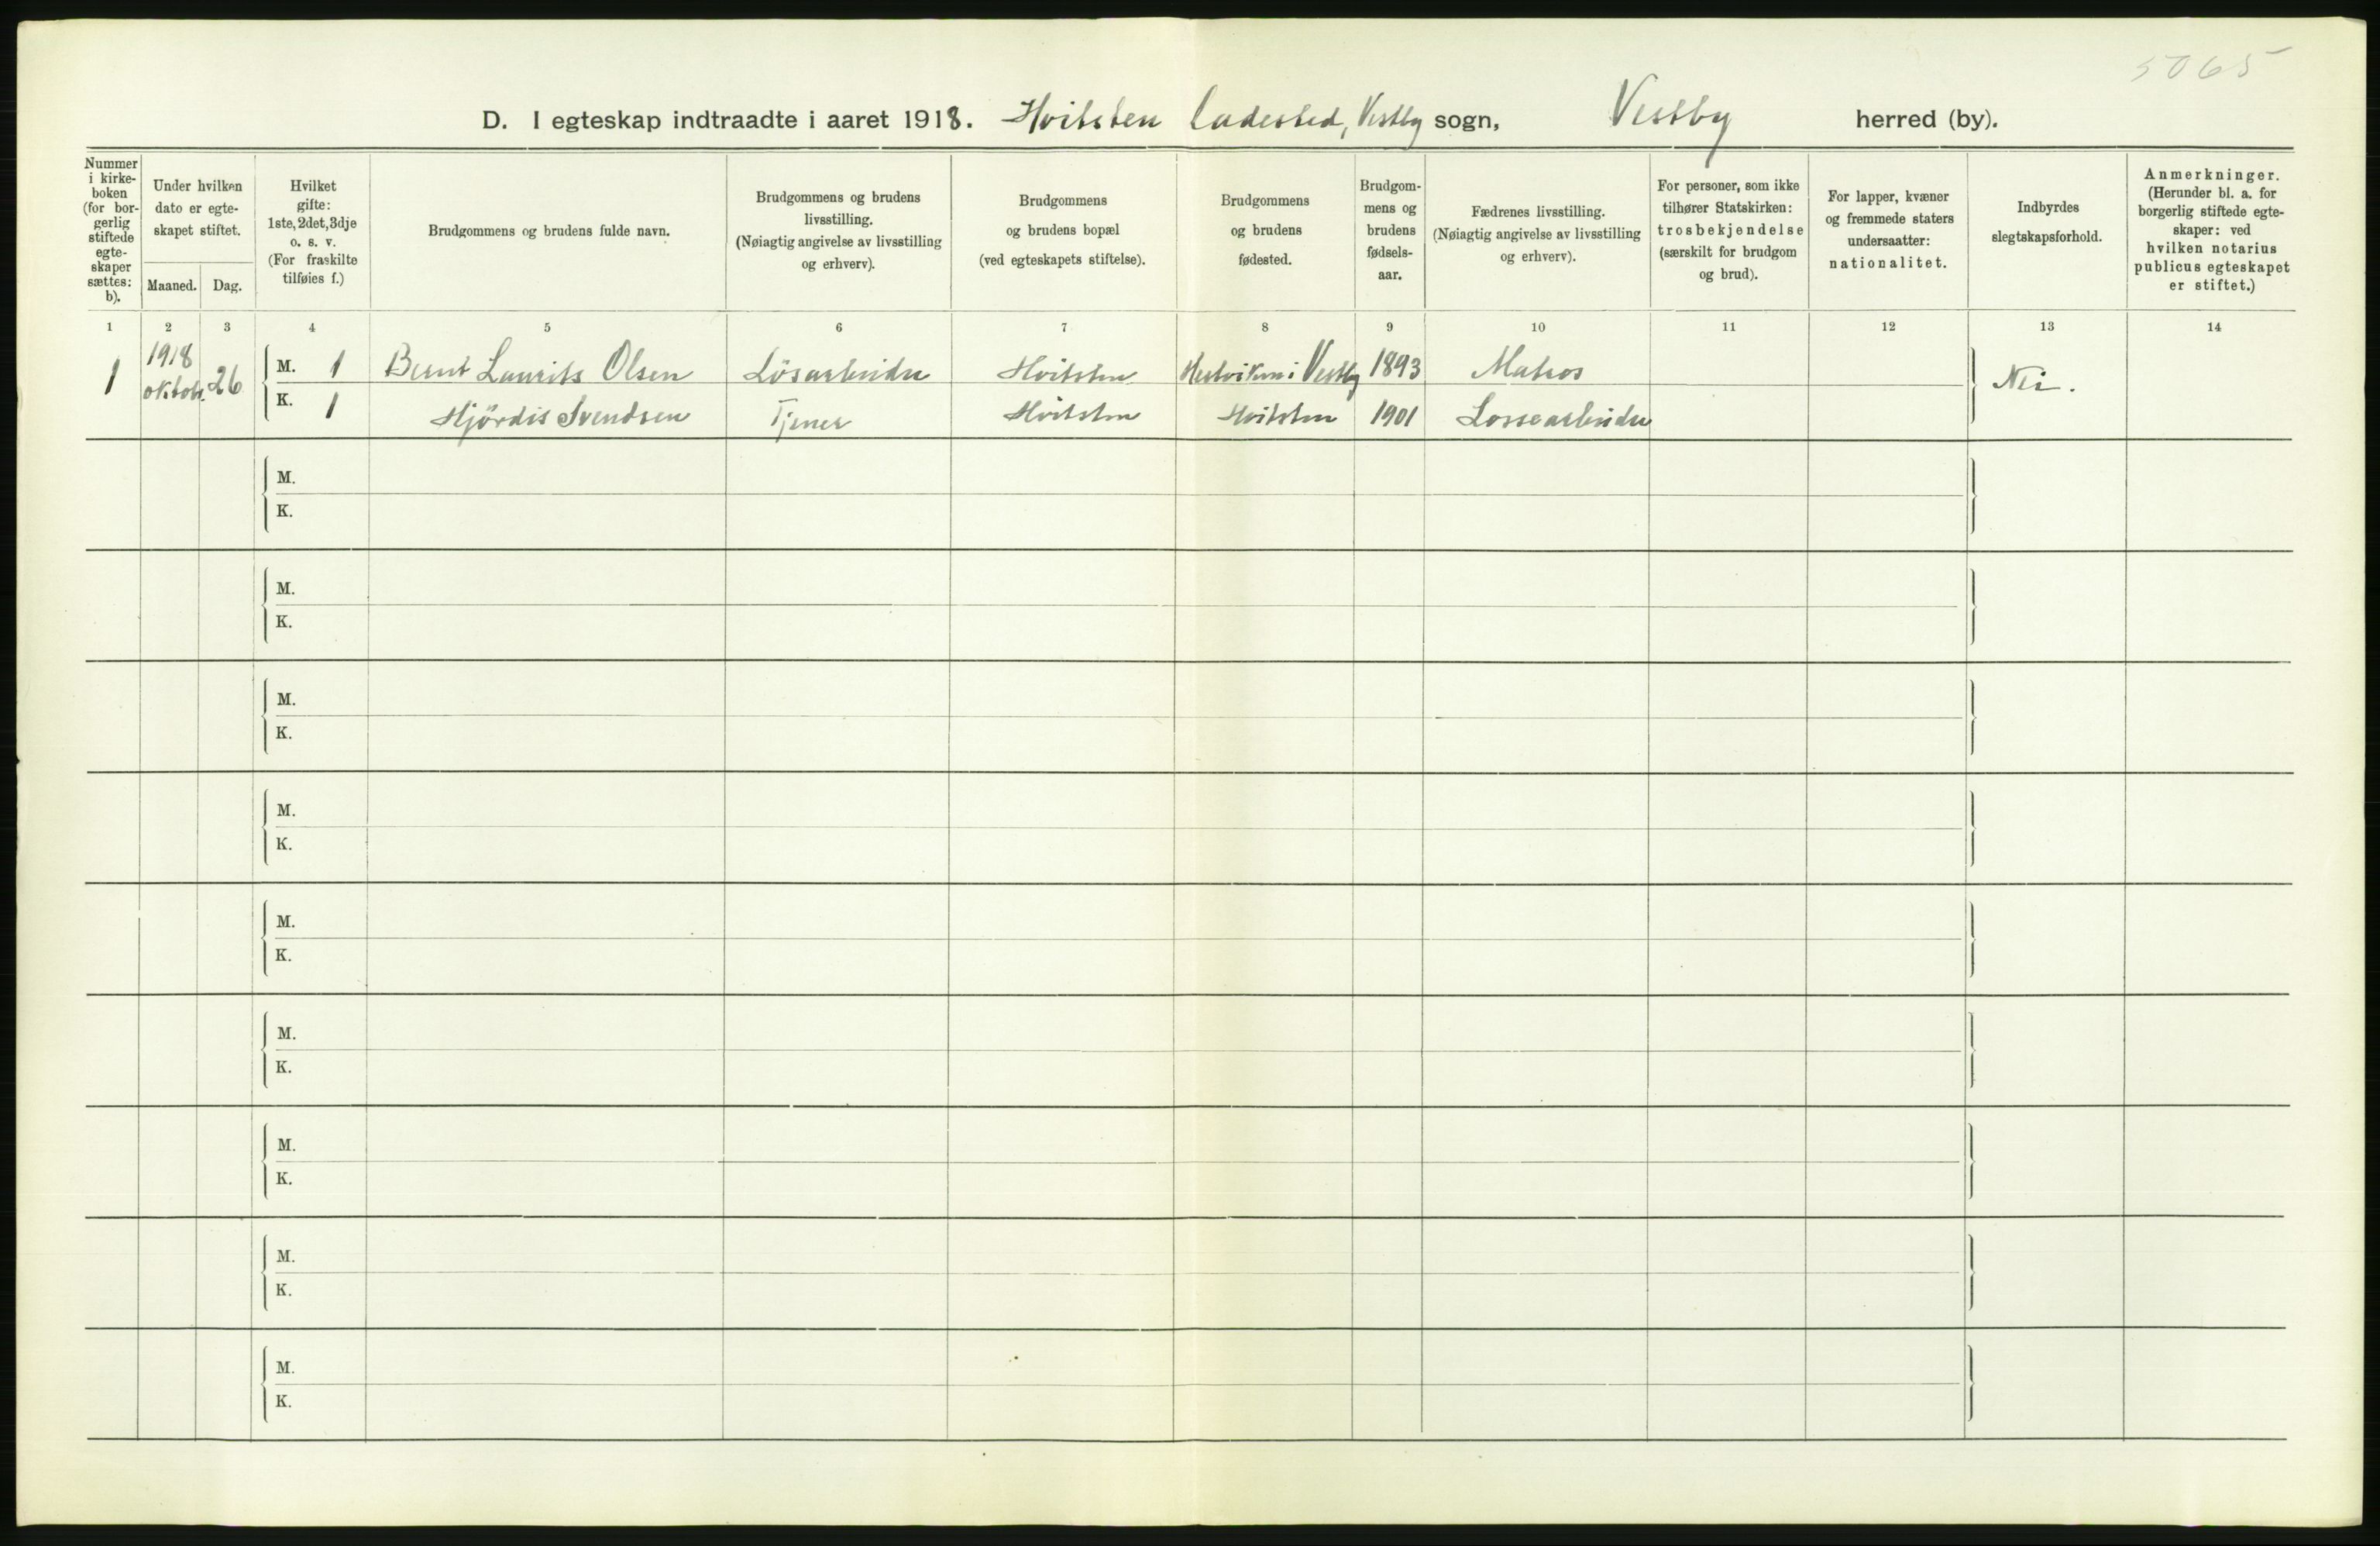 5065
D. I egteskap indtraadte i aaret 1918. Hvitsten ladested, Vestby sogn, Vestby herred (by).
Nummer i kirke- boken (for bor- gerlig stiftede egte- skaper sættes: b).
Under hvilken dato er egte- skapet stiftet.
Maaned. Dag.
Hvilket gifte: 1ste, 2det, 3dje o. s. v. (For fraskilte tilføies f.)
Brudgommens og brudens fulde navn.
Brudgommens og brudens livsstilling. (Nøiagtig angivelse av livsstilling og erhverv).
Brudgommens og brudens bopæl (ved egteskapets stiftelse).
Brudgommens og brudens fødested.
Brudgom- mens og brudens fødsels- aar.
Fædrenes livsstilling. (Nøiagtig angivelse av livsstilling og erhverv).
For personer, som ikke tilhører Statskirken: trosbekjendelse (særskilt for brudgom og brud).
For lapper, kvæner og fremmede staters undersaatter: nationalitet.
Indbyrdes slegtskapsforhold.
Anmerkninger. (Herunder bl. a. for borgerlig stiftede egte- skaper: ved hvilken notarius publicus egteskapet er stiftet.)
1 2 3 4 5 6 7 8 9 10 11 12 13 14
1918
1 oktob. 26 M. 1 Bernt Laurits Olsen Lösarbeider Hvitsten i Vestby 1893 Matros Nei.
K. 1 Hjördis Svendsen Tjener Hvitsten Hvitsten 1901 Lossearbeider
M.
K.
M.
K.
M.
K.
M.
K.
M.
K.
M.
K.
M.
K.
M.
K.
M.
K.